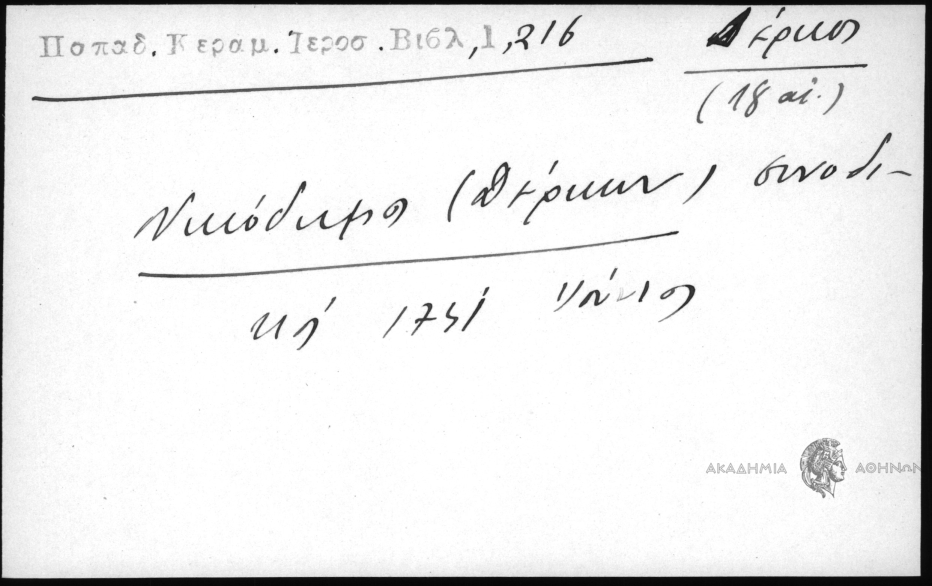 Παπαδ. Κεραμ. Ἱεροσ. Βιβλ, 1, 216
Δέρκοι
(18 αἰ.)
Νικόδημος (Δέρκων) συνοδι-
κή 1731 Ἰούνιος
ΑΚΑΔΗΜΙΑ ΑΘΗΝΩΝ